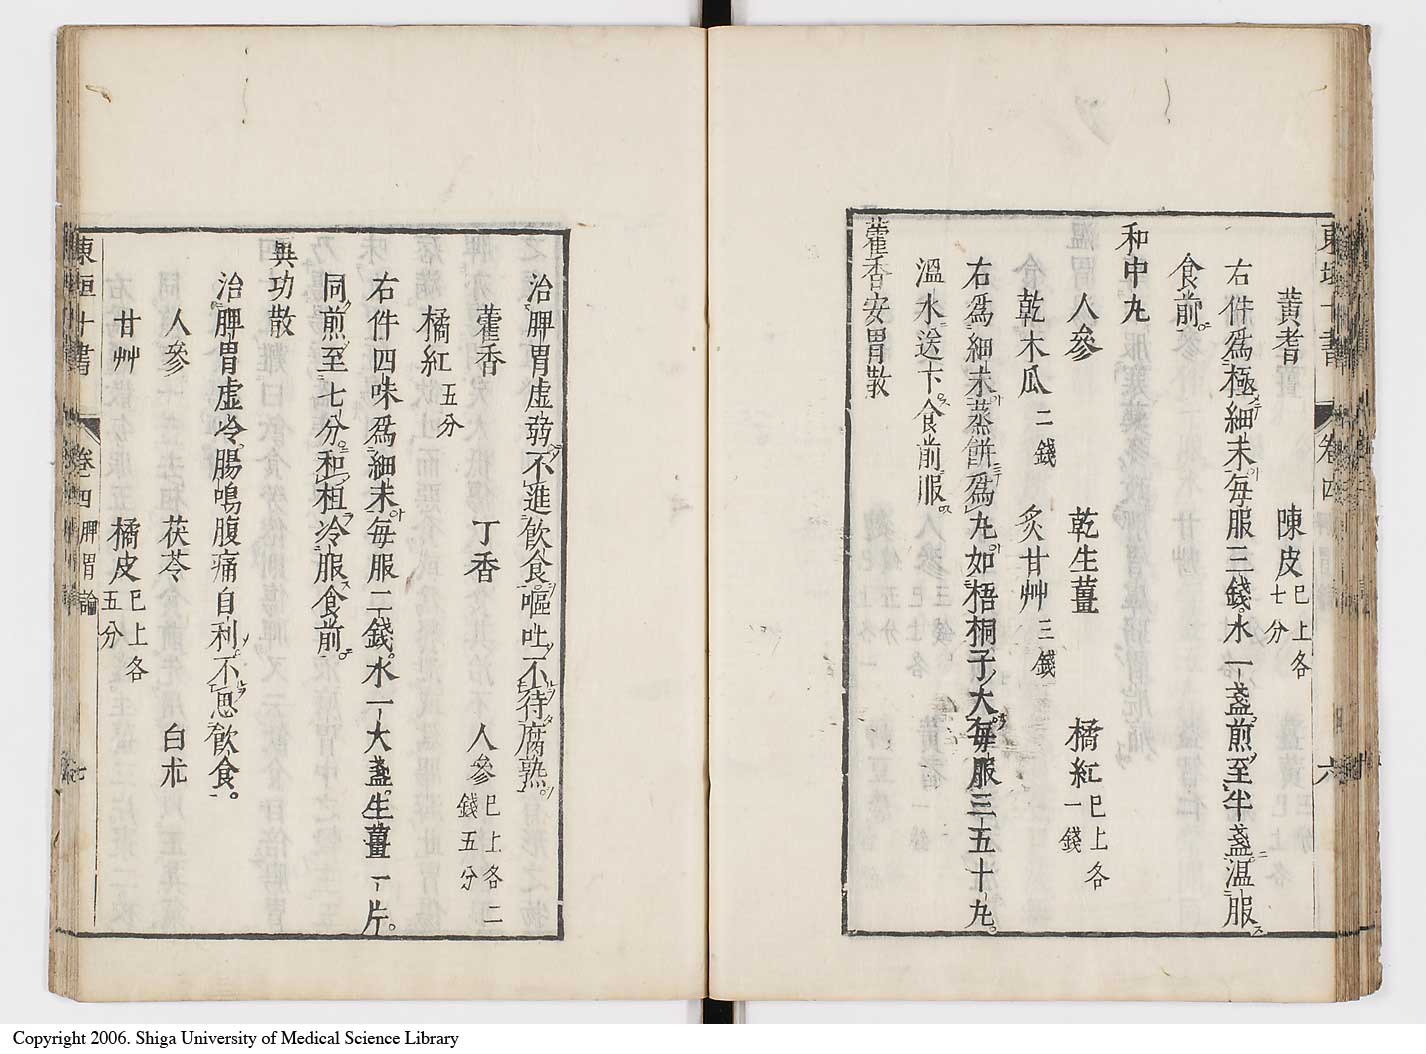 東垣十書 卷四 六
黃耆 陳皮已上各七分
右件爲極細末每服三錢水一盞煎至半盞溫服
食前
和中丸
人參 乾生薑 橘紅已上各一錢
乾木瓜二錢 炙甘艸三錢
右爲細末蒸餅爲丸如梧桐子大每服三五十丸
溫水送下食前服
藿香安胃散
治脾胃虛弱不進飲食嘔吐不待腐熟
藿香 丁香 人參已上各二錢五分
橘紅五分
右件四味爲細末每服二錢水一大盞生薑一片
同煎至七分和柤冷服食前
異功散
治脾胃虛冷腸鳴腹痛自利不思飲食
人參 茯苓 白朮
甘艸 橘皮已上各五分
東垣十書 卷四 脾胃論 七
Copyright 2006. Shiga University of Medical Science Library